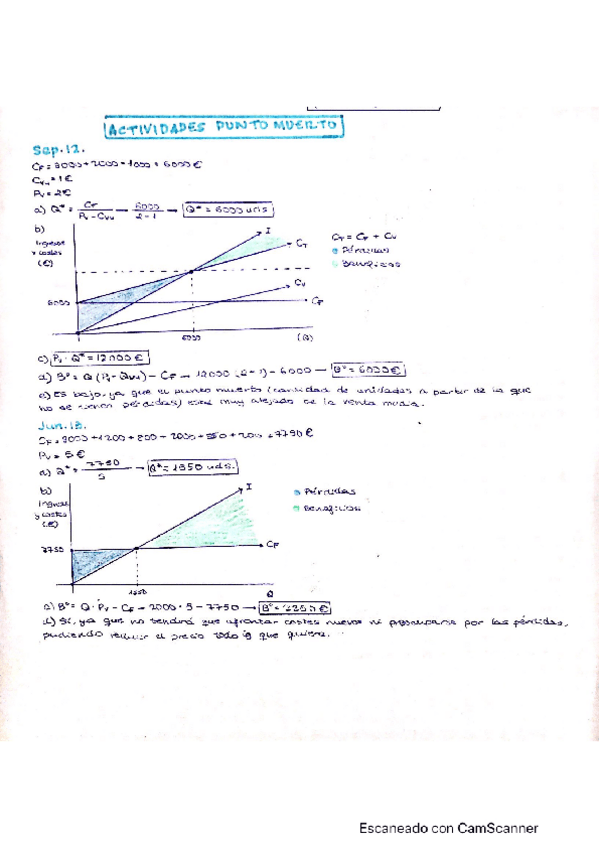 ACTIVIDADES PUNTO MUERTO
Sep.12.
CF = 3000 + 2000 + 1000 = 6000 €
CVu = 1 €
Pv = 2 €
a) Q* = CF / Pv - CVu → 6000 / 2-1 → Q* = 6000 uds
b)
Ingresos y costes (€)
I
CT
CV
CF
6000
6000
(Q)
CT = CF + CV
Pérdidas
Beneficios
c) Pv · Q* = 12000 €
d) Bº = Q (Pv - CVu) - CF → 12000 (2-1) - 6000 → Bº = 6000 €
e) Es bajo, ya que el punto muerto (cantidad de unidades a partir de la que
no se tienen pérdidas) está muy alejado de la venta media.
Jun.13.
Pv = 5 €
a) Q* = 7750 / 5 → Q* = 1550 uds.
b)
Ingresos y costes (€)
I
CF
7750
1550
Q
Pérdidas
Beneficios
c) Bº = Q · Pv - CF → 2000 · 5 - 7750 → Bº = 2250 €
d) Sí, ya que no tendrá que afrontar costes nuevos ni preocuparse por las pérdidas,
pudiendo reducir el precio todo lo que quiera.
Escaneado con CamScanner